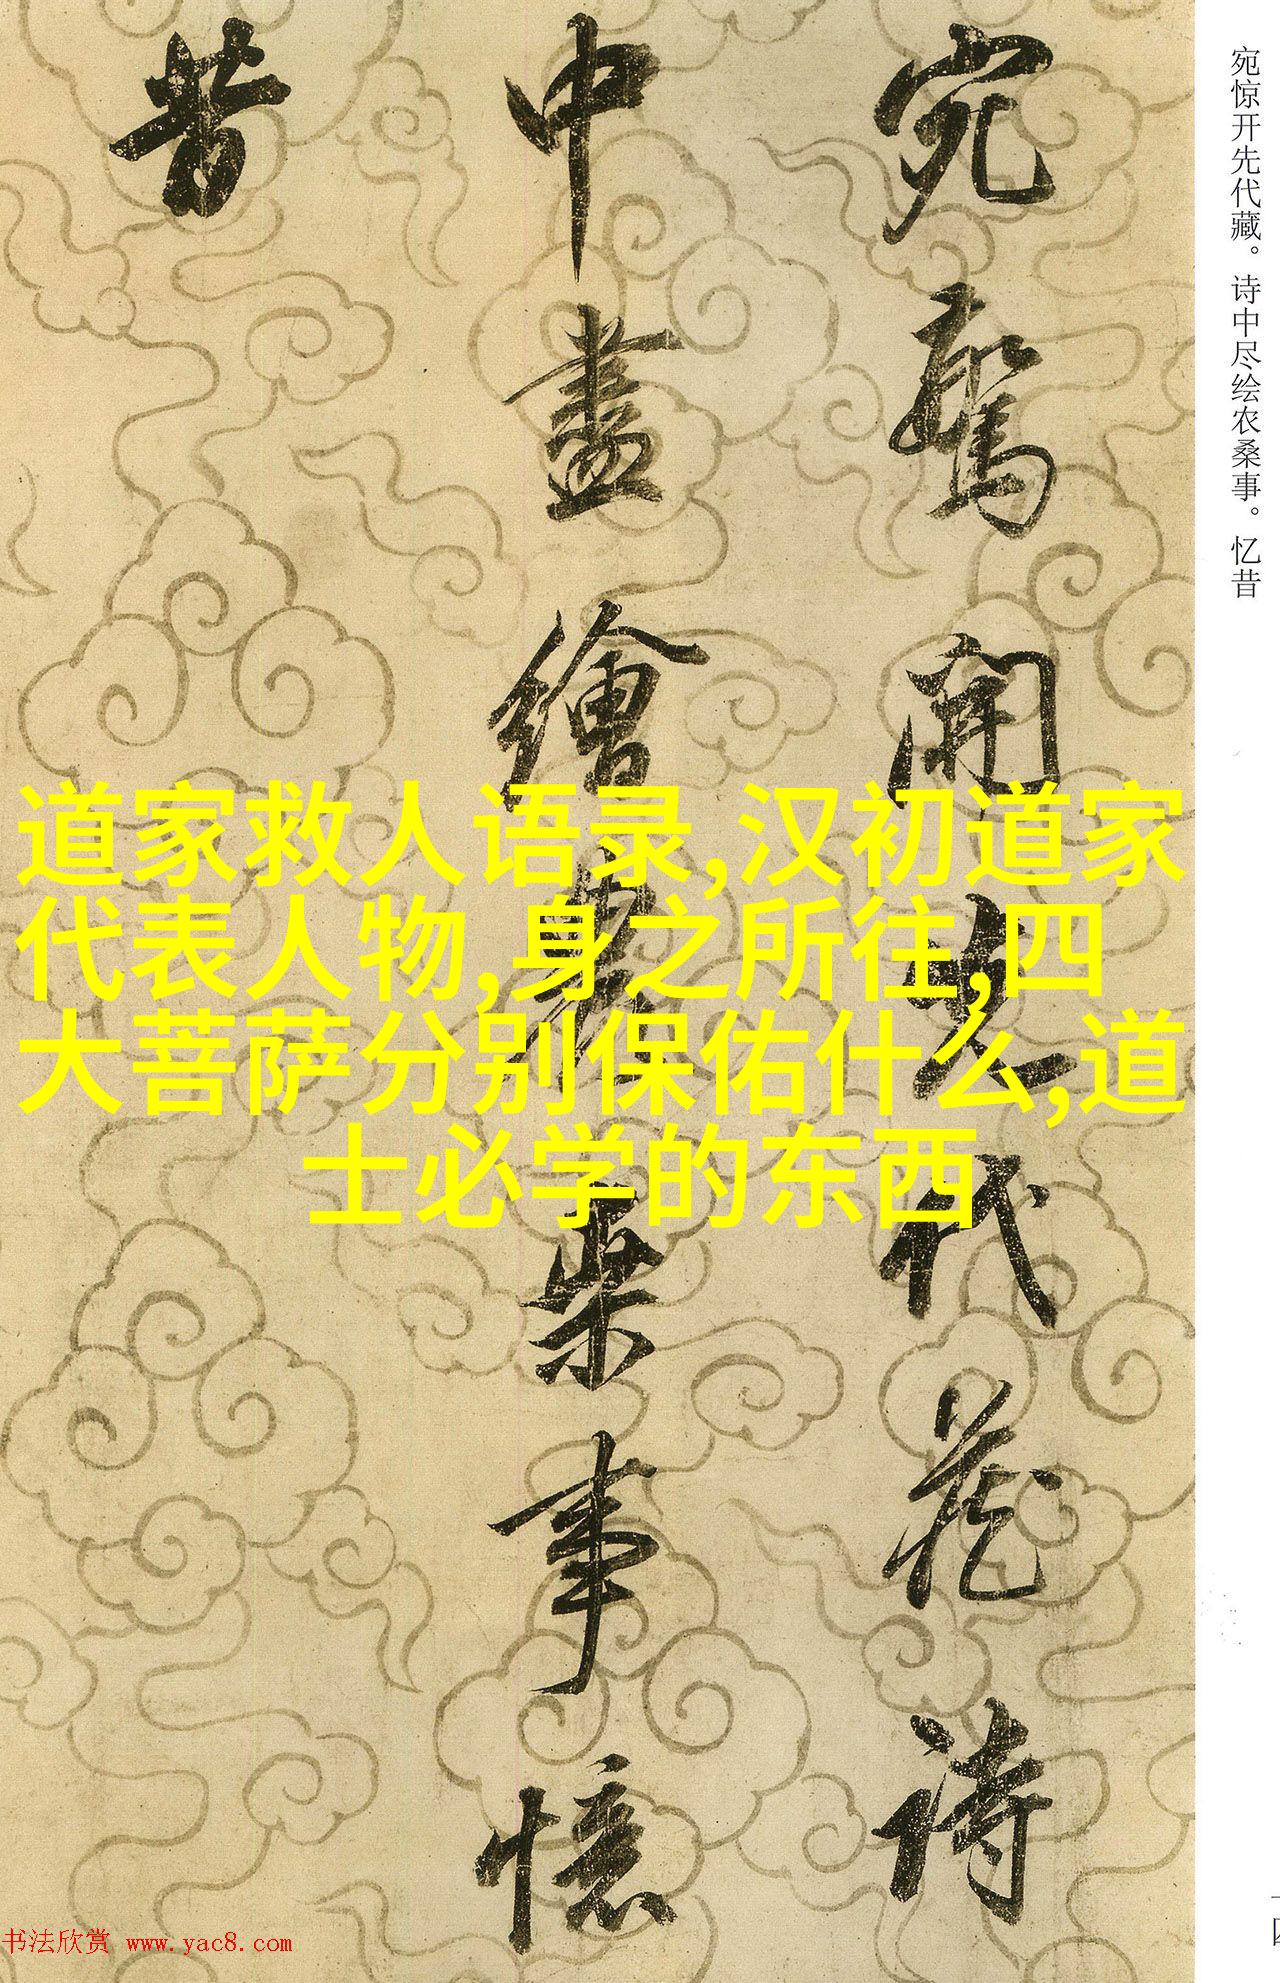 宛驚開先代藏詩
中盡繪農桑事憶
昔
宛惊开先代藏。诗中尽绘农桑事。忆昔
道家救人语录,汉初道家
代表人物,身之所往,四
大菩萨分别保佑什么,道
士必学的东西
书法欣赏 www.yac8.com